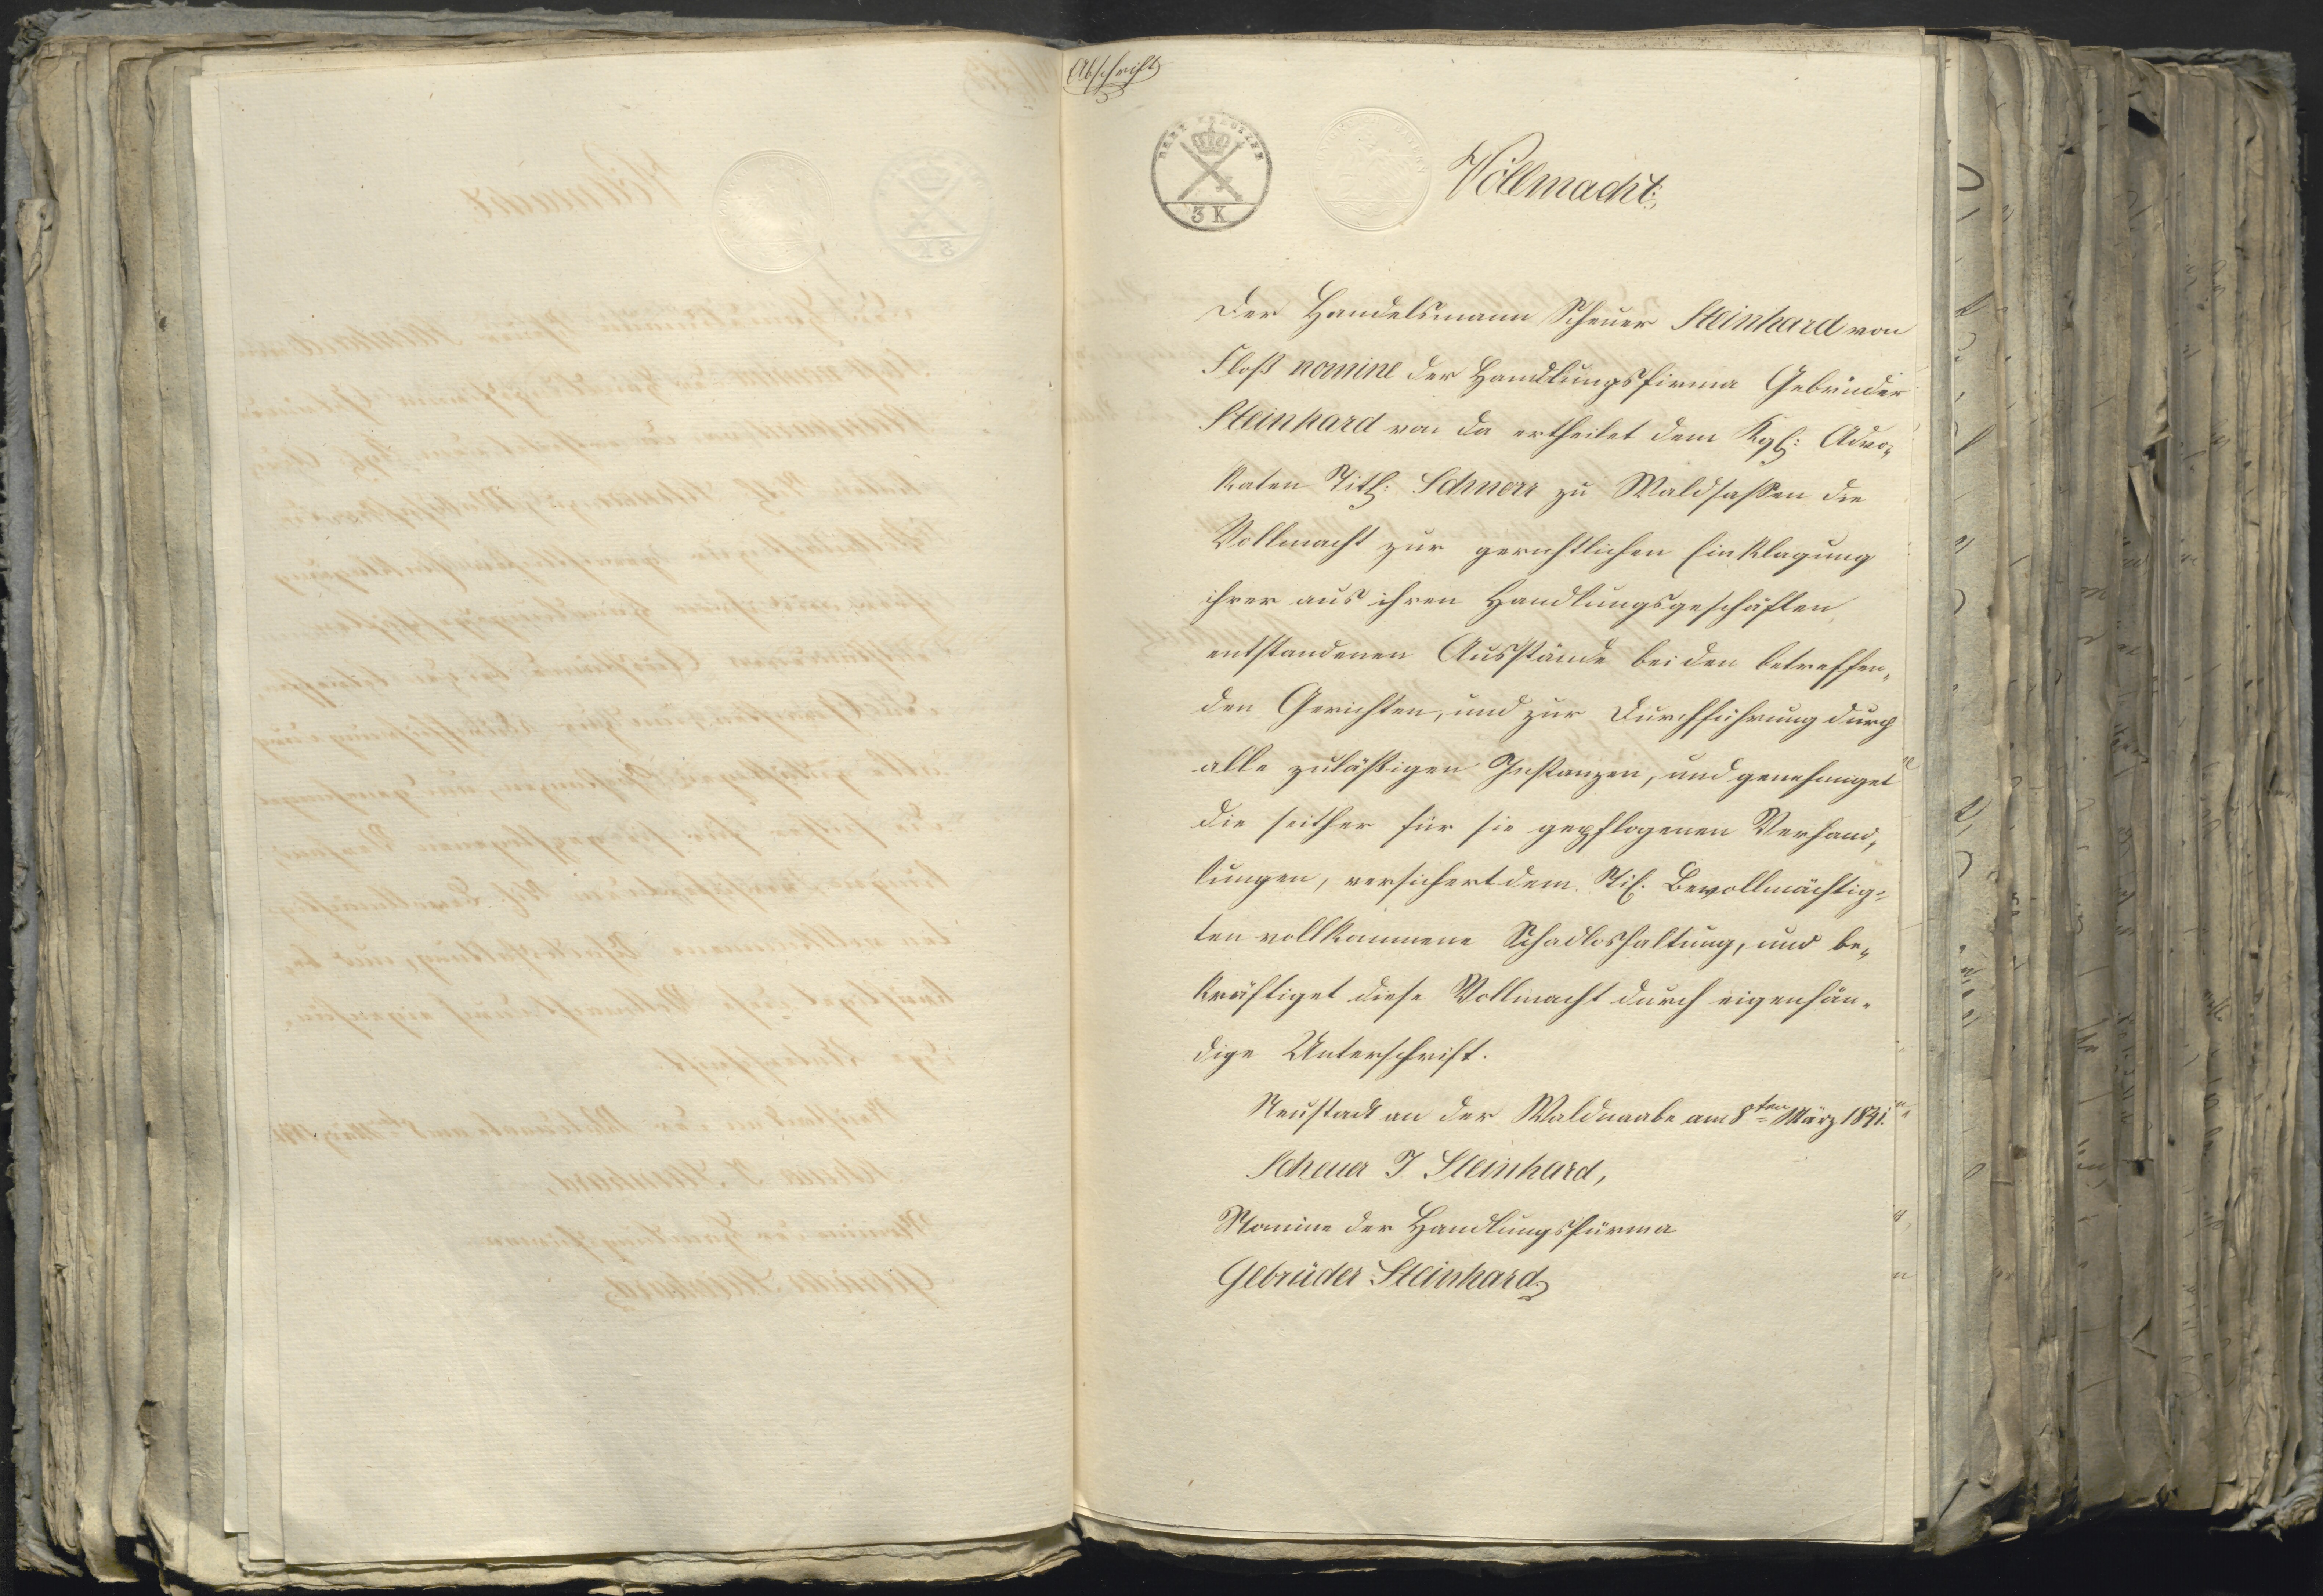 Abschrift
DREI KREUZER
3 K
Vollmacht.
Der Handelsmann Scheuer Steinhard von
Floß nomine der Handlungsfirma Gebrüder
Steinhard von da ertheilet dem Kgl: Advo„
katen Titl: Schnerr zu Waldsassen die
Vollmacht zur gerichtlichen Einklagung
ihrer aus ihren Handlungsgeschäften
entstandenen Ausstände bei den betreffen„
den Gerichten, und zur Durchführung durch
alle zuläßigen Instanzen, und genehmiget
die seither für sie gepflogenen Verhand„
lungen, versichert dem Bevollmächtig=
ten vollkommene Schadloshaltung, und be„
kräftiget diese Vollmacht durch eigenhän„
dige Unterschrift.
Neustadt an der Waldnaabe am 8ten März 1841.
Scheuer J. Steinhard,
Nomine der Handlungsfürma
Gebrüder Steinhard